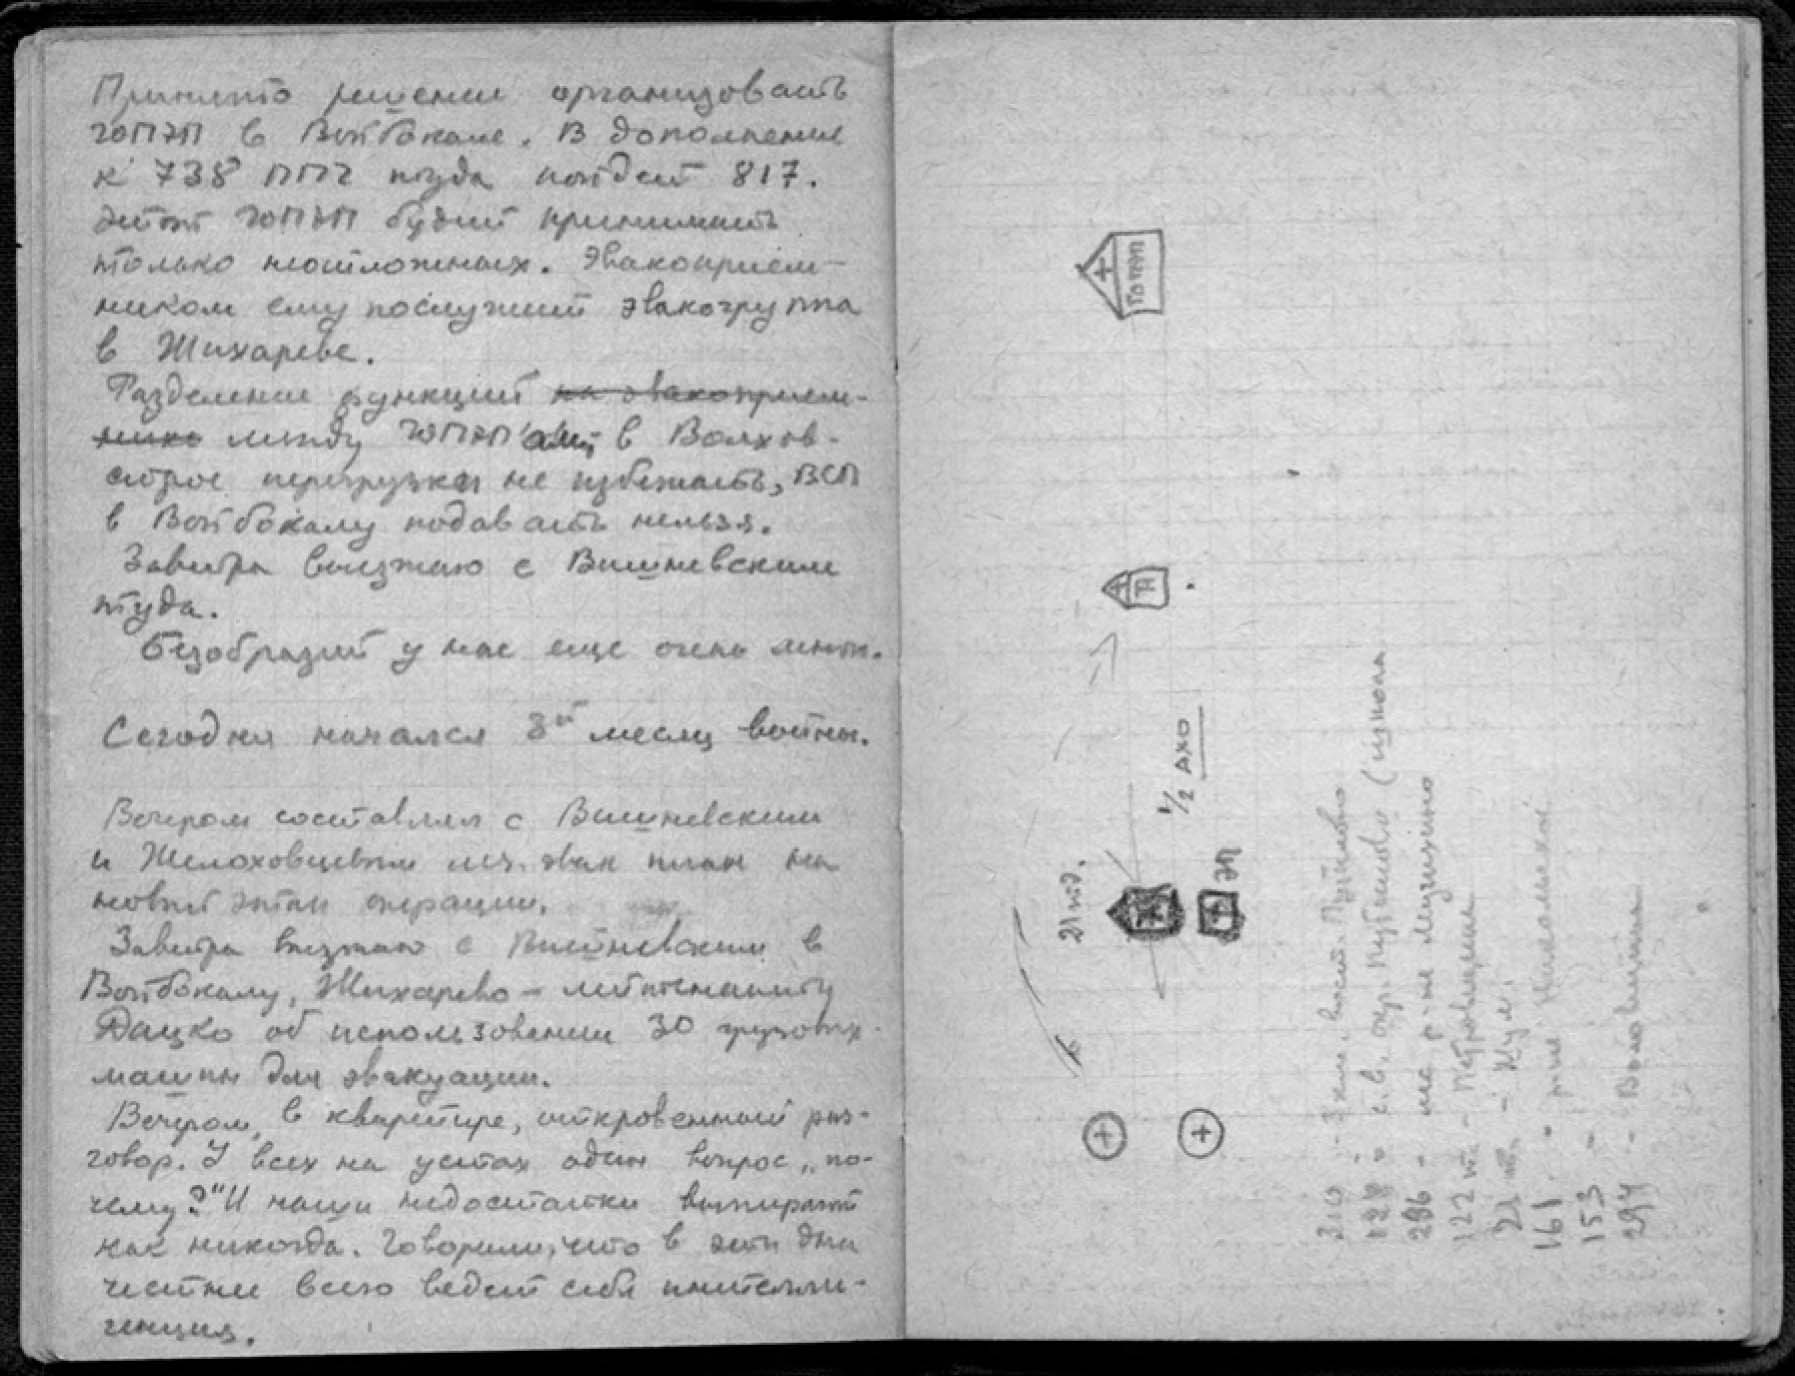 Принято решение организовать
ГОПЭП в Войбокале. В дополнение
к 738 ППГ туда пойдет 817.
Этот ГОПЭП будет принимать
только неотложных. Эвакоприем-
ником ему послужит эвакогруппа
в Жихареве.
Разделение функций на эвакоприем-
ника между ГОПЭП'ами в Волхов-
строе перегрузки не избежать, ВСП
в Войбокалу подавать нельзя.
Завтра выезжаю с Вишневским
туда.
Безобразий у нас еще очень много.
Сегодня начался 8ой месяц войны.
Вечером составлял с Вишневским
и Желоховцевым леч. эвак план на
новый этап операции.
Завтра выезжаю с Вишневским в
Войбокалу, Жихарево – лейтенанту
Дацко об использовании 30 грузовых
машин для эвакуации.
Вечером, в квартире, откровенный раз-
говор. У всех на устах один вопрос „по-
чему?" И наши недостатки выпирают
как никогда. Говорили, что в эти дни
честнее всего ведет себя интелли-
генция.
1/2 АХО
21 тд.
ЭП
310 - 3 км. вост. Путилово
128 - с.в. окр. Путилово (
286 - лес р-не Мучихино
122 т - Петровщина
21 - Жум.
161 -
153 -
294 - Вороновщина